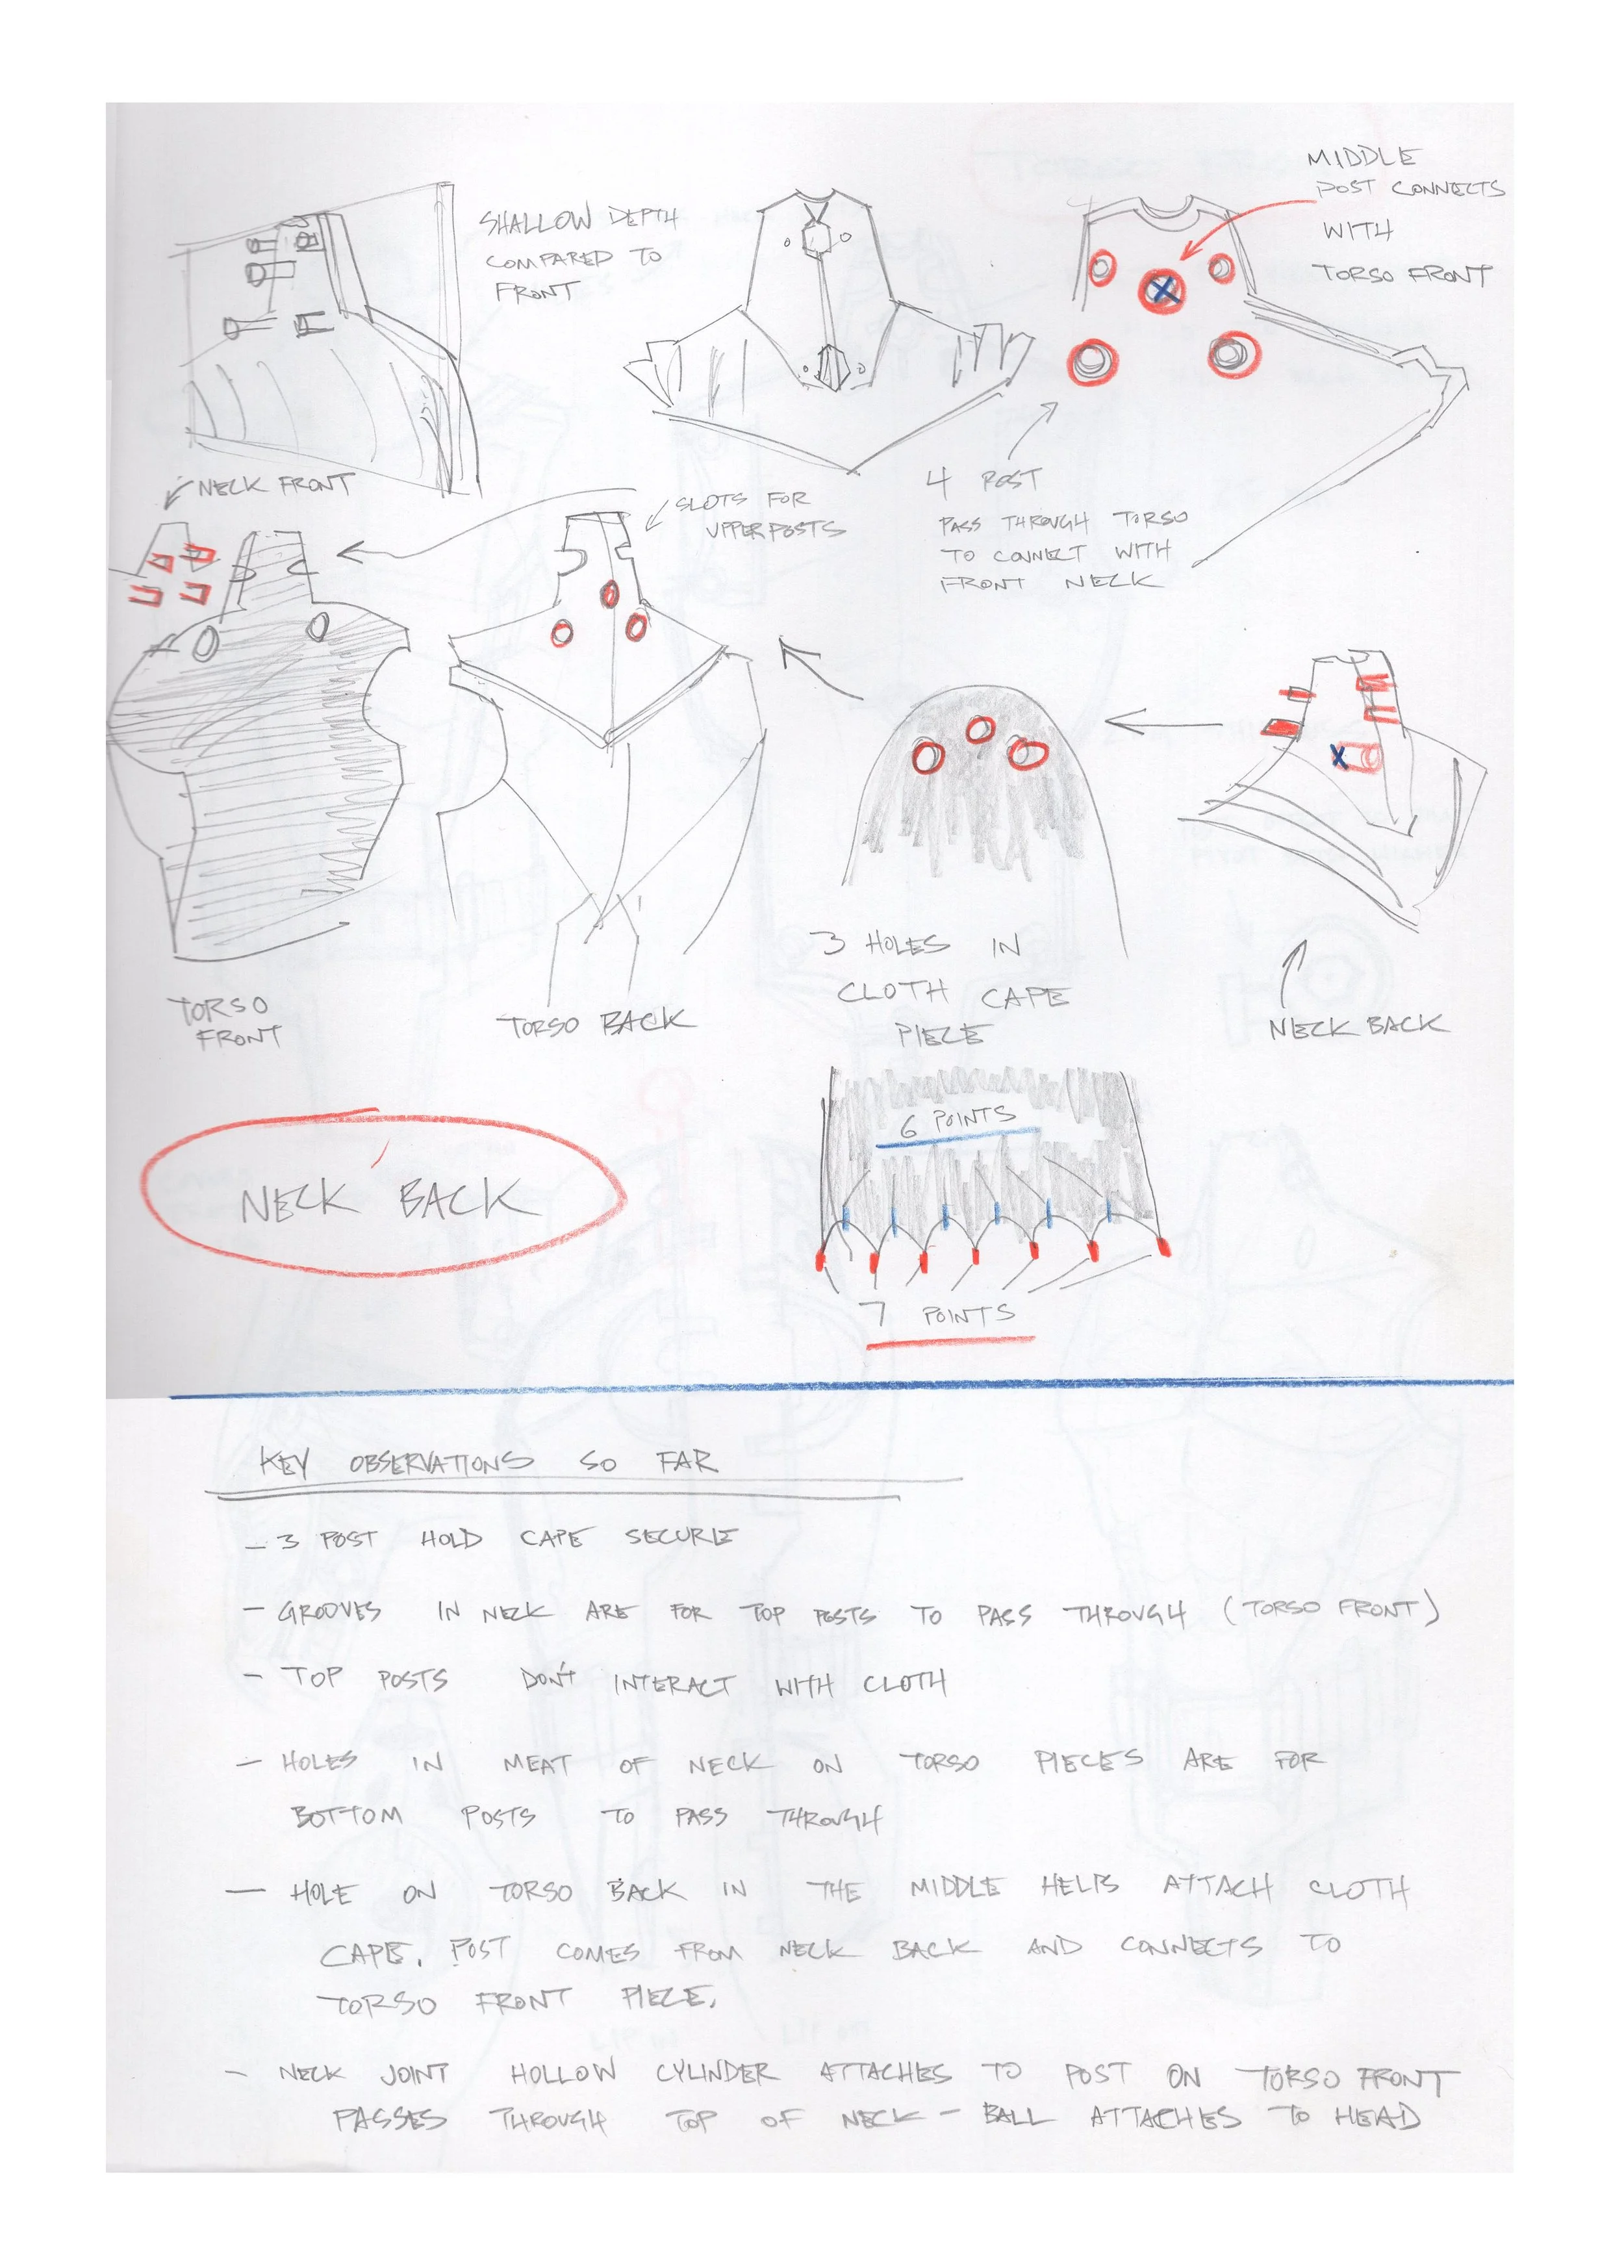 MIDDLE
POST CONNECTS
WITH
TORSO FRONT
SHALLOW DEPTH
COMPARED TO
FRONT
NECK FRONT
SLOTS FOR
UPPER POSTS
4 POST
PASS THROUGH TORSO
TO CONNECT WITH
FRONT NECK
TORSO
FRONT
TORSO BACK
3 HOLES IN
CLOTH CAPE
PIECE
NECK BACK
NECK BACK
6 POINTS
7 POINTS
KEY OBSERVATIONS SO FAR
- 3 POST HOLD CAPE SECURE
- GROOVES IN NECK ARE FOR TOP POSTS TO PASS THROUGH (TORSO FRONT)
- TOP POSTS DON'T INTERACT WITH CLOTH
- HOLES IN MEAT OF NECK ON TORSO PIECES ARE FOR
BOTTOM POSTS TO PASS THROUGH
- HOLE ON TORSO BACK IN THE MIDDLE HELPS ATTACH CLOTH
CAPE. POST COMES FROM NECK BACK AND CONNECTS TO
TORSO FRONT PIECE.
- NECK JOINT HOLLOW CYLINDER ATTACHES TO POST ON TORSO FRONT
PASSES THROUGH TOP OF NECK - BALL ATTACHES TO HEAD